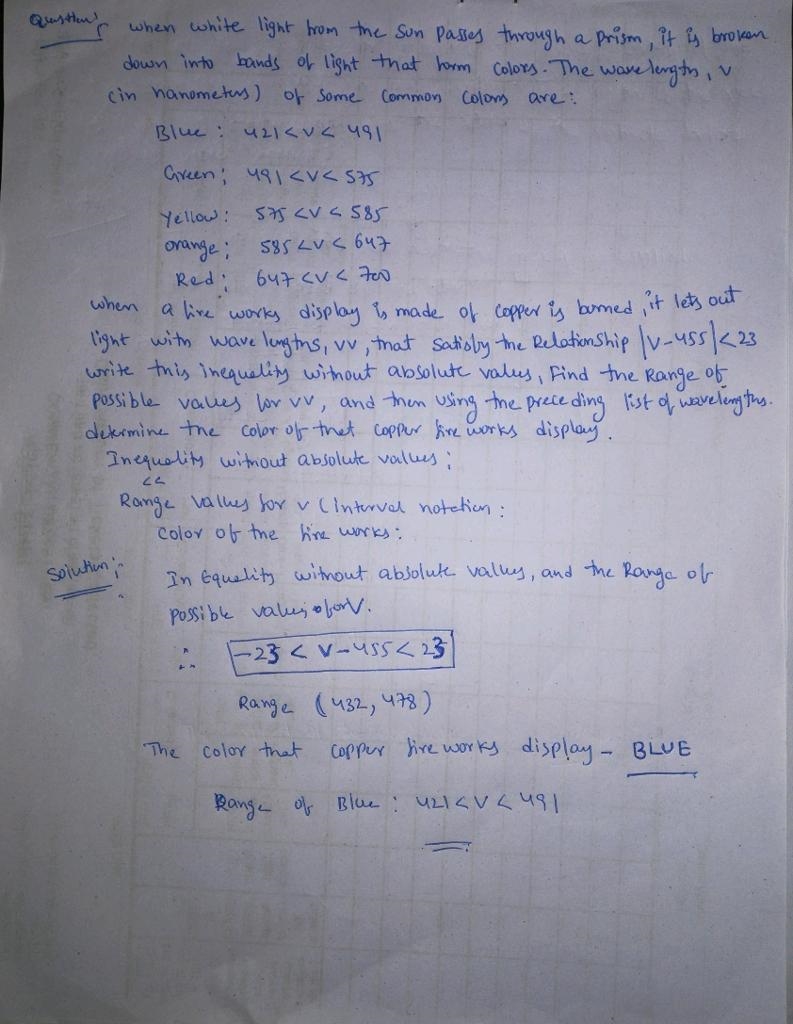 Question; when white light from the sun passes through a prism, it is broken
down into bands of light that form colors. The wave length, v
(in nanometers) of some common colors are:
Blue : 421 < v < 491
Green ; 491 < v < 575
Yellow : 575 < v < 585
orange ; 585 < v < 647
Red ; 647 < v < 700
when a fire works display is made of copper is burned, it lets out
light with wave lengths, vv, that satisfy the Relationship |v-455| < 23
write this inequality without absolute values, Find the Range of
possible values for vv, and then using the preceding list of wavelengths.
determine the color of that copper fire works display.
Inequality without absolute values ;
<<
Range values for v (Interval notation :
color of the fire works :
Solution ; In Equality without absolute values, and the Range of
possible values of for V.
∴ -23 < V-455 < 23
Range (432, 478)
The color that copper fire works display - BLUE
Range of Blue : 421 < v < 491